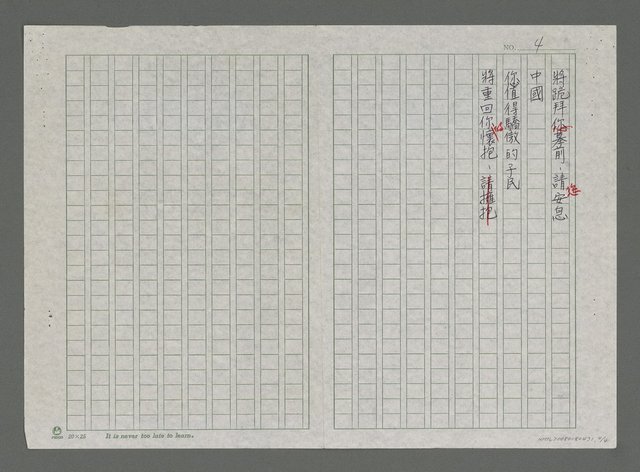 NO. 4
將跪拜你墓前，請安息
中國
你值得驕傲的子民
將重回你懷抱，請擁抱
20×25 It is never too late to learn.